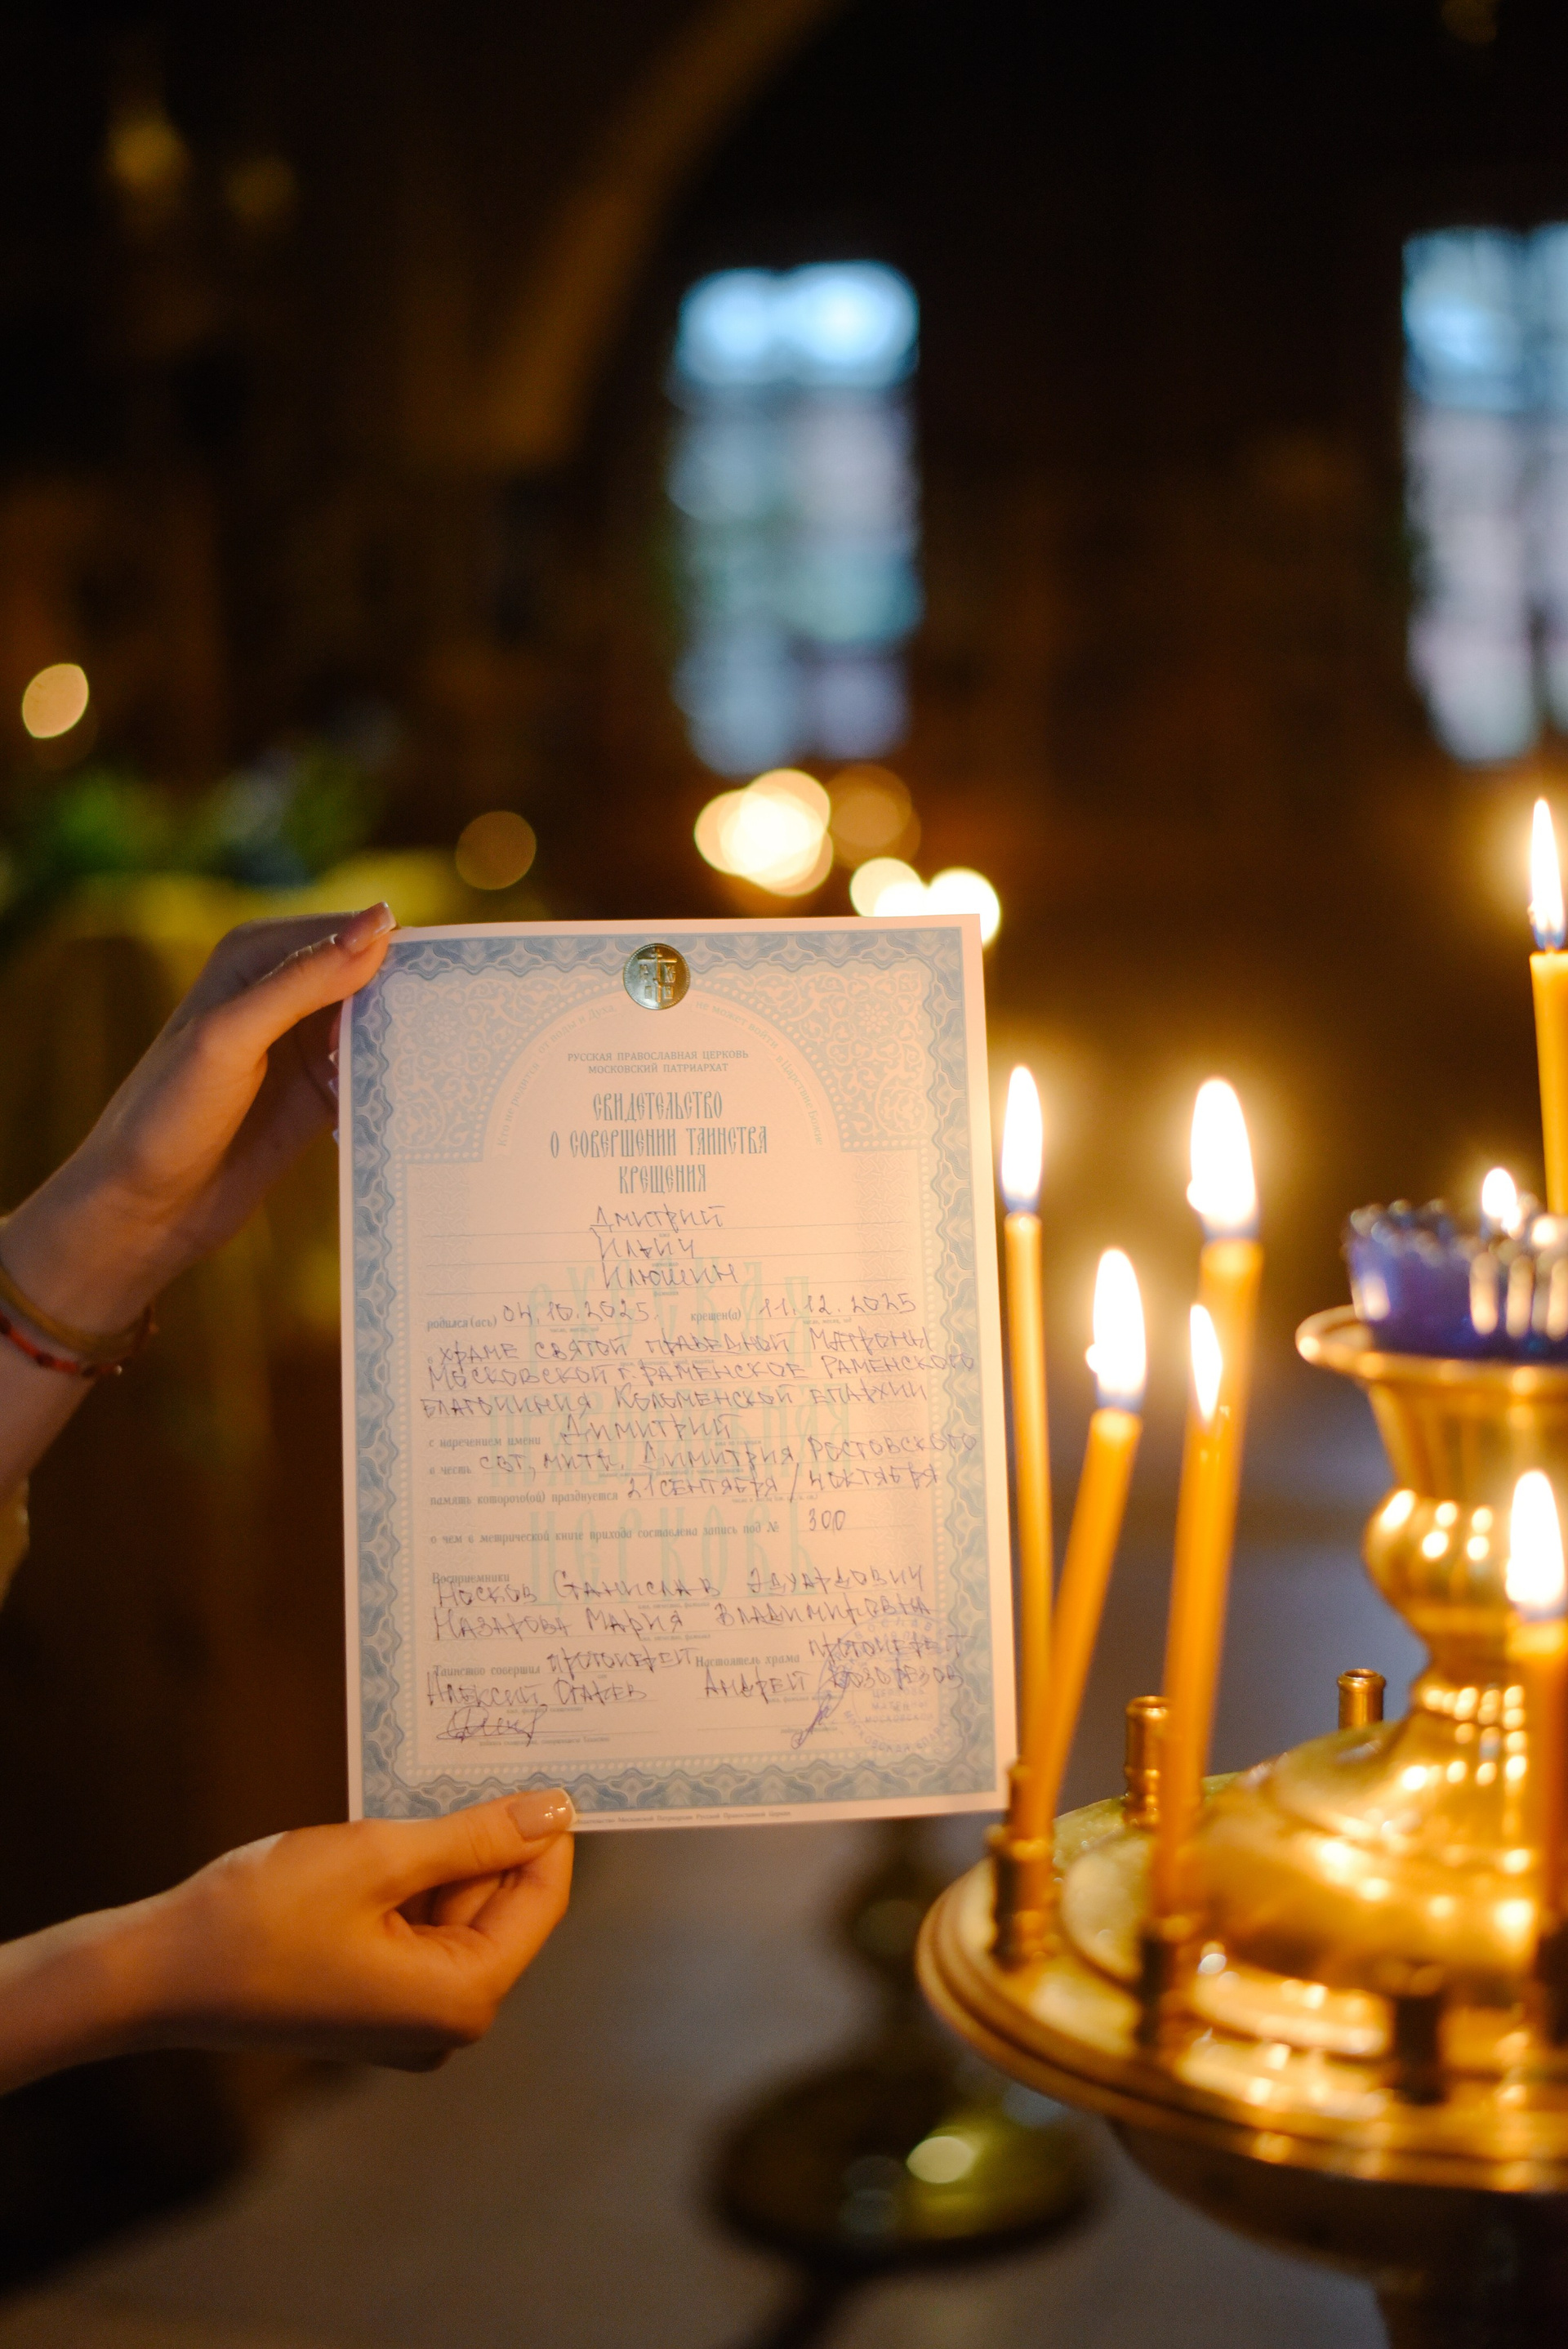 Кто не родится от воды и Духа, не может войти в Царствие Божие
РУССКАЯ ПРАВОСЛАВНАЯ ЦЕРКОВЬ
МОСКОВСКИЙ ПАТРИАРХАТ
СВИДЕТЕЛЬСТВО
О СОВЕРШЕНИИ ТАИНСТВА
КРЕЩЕНИЯ
Дмитрий
Ильич
Илюшин
родился(ась) 04.10.2025. крещен(а) 11.12.2025
в храме святой праведной Матроны
Московской г. Раменское Раменского
благочиния Коломенской епархии
с наречением имени Димитрий
в честь свт, митр. Димитрия, Ростовского
память которого(ой) празднуется 21 сентября / 4 октября
о чем в метрической книге прихода составлена запись под № 300
Восприемники
Носков Станислав Эдуардович
Назарова Мария Владимировна
Таинство совершил протоиерей Настоятель храма протоиерей
Алексий Андрей
Московской Патриархии Русской Православной Церкви